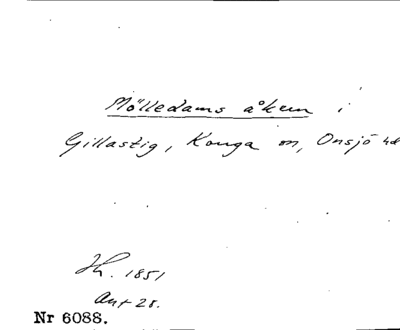 Mölledams åken i
Gillastig, Konga sn, Onsjö hd
Ih. 1851
Ant 28.
Nr 6088.